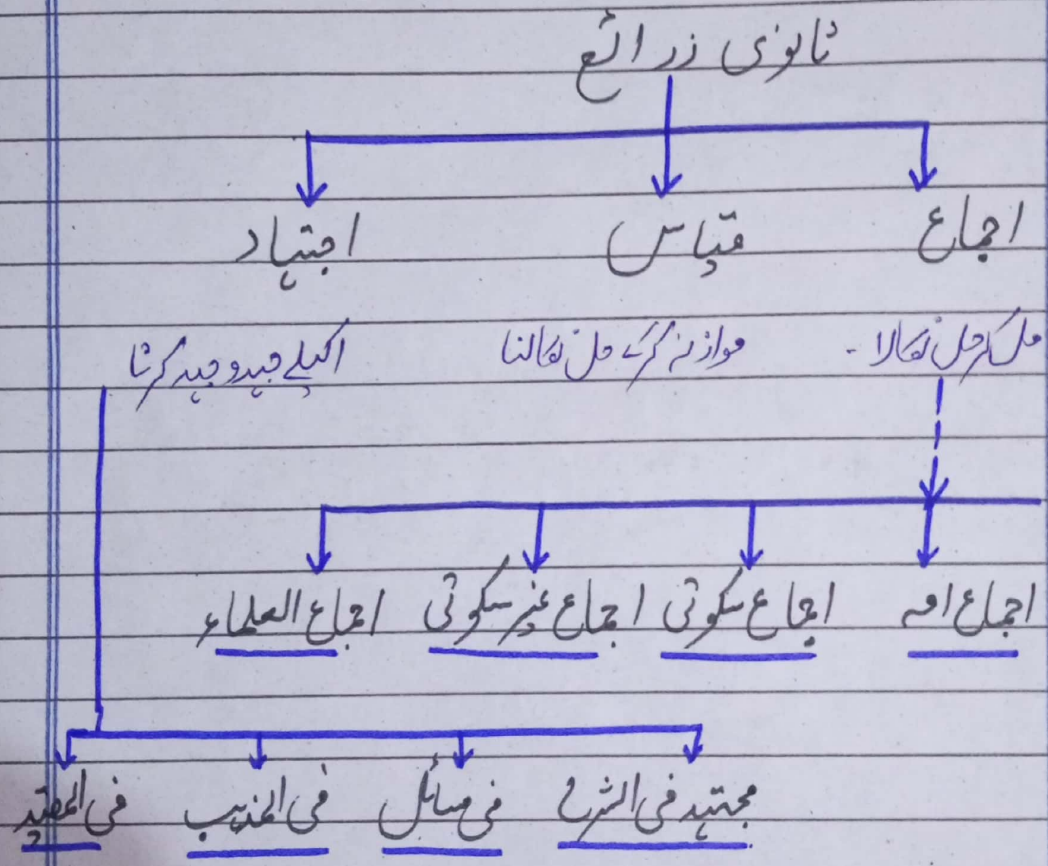 ثانوی زرائع
اجماع قیاس اجتہاد
مل کر حل نکالا۔ موازنہ کرکے حل نکالنا اکیلے جدوجہد کرنا
اجماع امہ اجماع سکوتی اجماع غیر سکوتی اجماع العلماء
مجتہد فی الشرع فی مسائل فی المذہب فی المقید